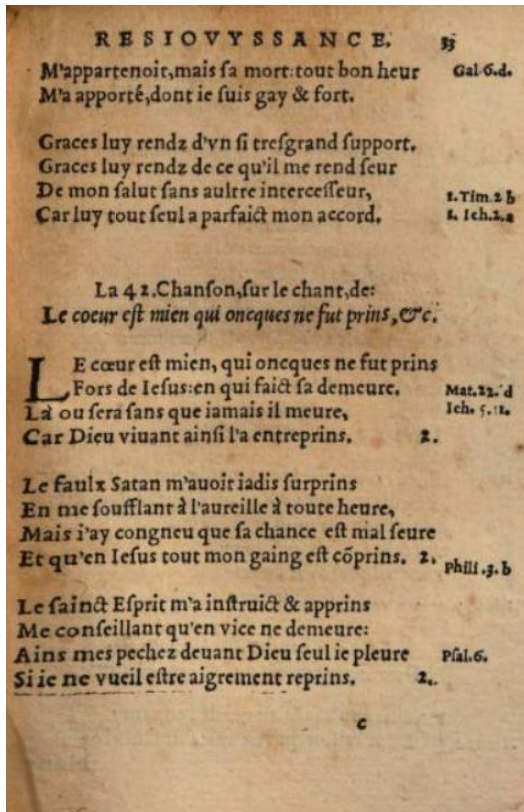 RESIOVYSSANCE. 33
M'appartenoit,mais sa mort:tout bon heur Gal.6.d.
M'a apporté,dont ie suis gay & fort.
Graces luy rendz d'vn si tresgrand support.
Graces luy rendz de ce qu'il me rend seur
De mon salut sans aultre intercesseur, 1.Tim.2 b
Car luy tout seul a parfaict mon accord. 1. Ieh.2.a
La 42.Chanson,sur le chant,de:
Le coeur est mien qui oncques ne fut prins,&c.
LE cœur est mien, qui oncques ne fut prins
Fors de Iesus:en qui faict sa demeure. Mat.22. d
La ou sera sans que iamais il meure, Ieh. 5.
Car Dieu viuant ainsi l'a entreprins. 2.
Le faulx Satan m'auoit iadis surprins
En me soufflant à l'aureille à toute heure,
Mais i'ay congneu que sa chance est mal seure
Et qu'en Iesus tout mon gaing est cõprins. 2. Phili.3.b
Le sainct Esprit m'a instruict & apprins
Me conseillant qu'en vice ne demeure:
Ains mes pechez deuant Dieu seul ie pleure Psal.6.
Si ie ne vueil estre aigrement reprins. 2.
c